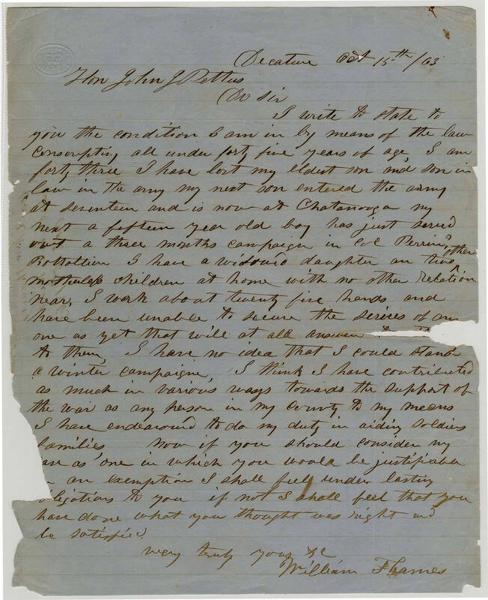 Decature Oct 15th /63
Hon John J Pettus
Dr Sir
I write to state to
you the condition I am in by means of the law
conscripting all under forty five years of age, I am
forty three I have lost my eldest son and son in
law in the army my next son entered the army
at seventeen and is now at Chatanooga my
next a fifteen year old boy has just served
out a three months campaign in Col Perrins
Battallion I have a widowed daughter an two other
motherless children at home with no other relation
near, I work about twenty five hands, and
have been unable to secure the servises of any
one as yet that will at all answer
to them, I have no idea that I could stand
a winter campaigne, I think I have contributed
as much in various ways towards the support of
the war as any person in my county to my means
I have endeavored to do my duty in aiding soldiers
families Now if you should consider my
case as one in which you would be justifiable
in an exemption I shall feel under lasting
obligations to you if not I shall feel that you
have done what you thought was right and
be satisfied
very truly yours &c
William Thames